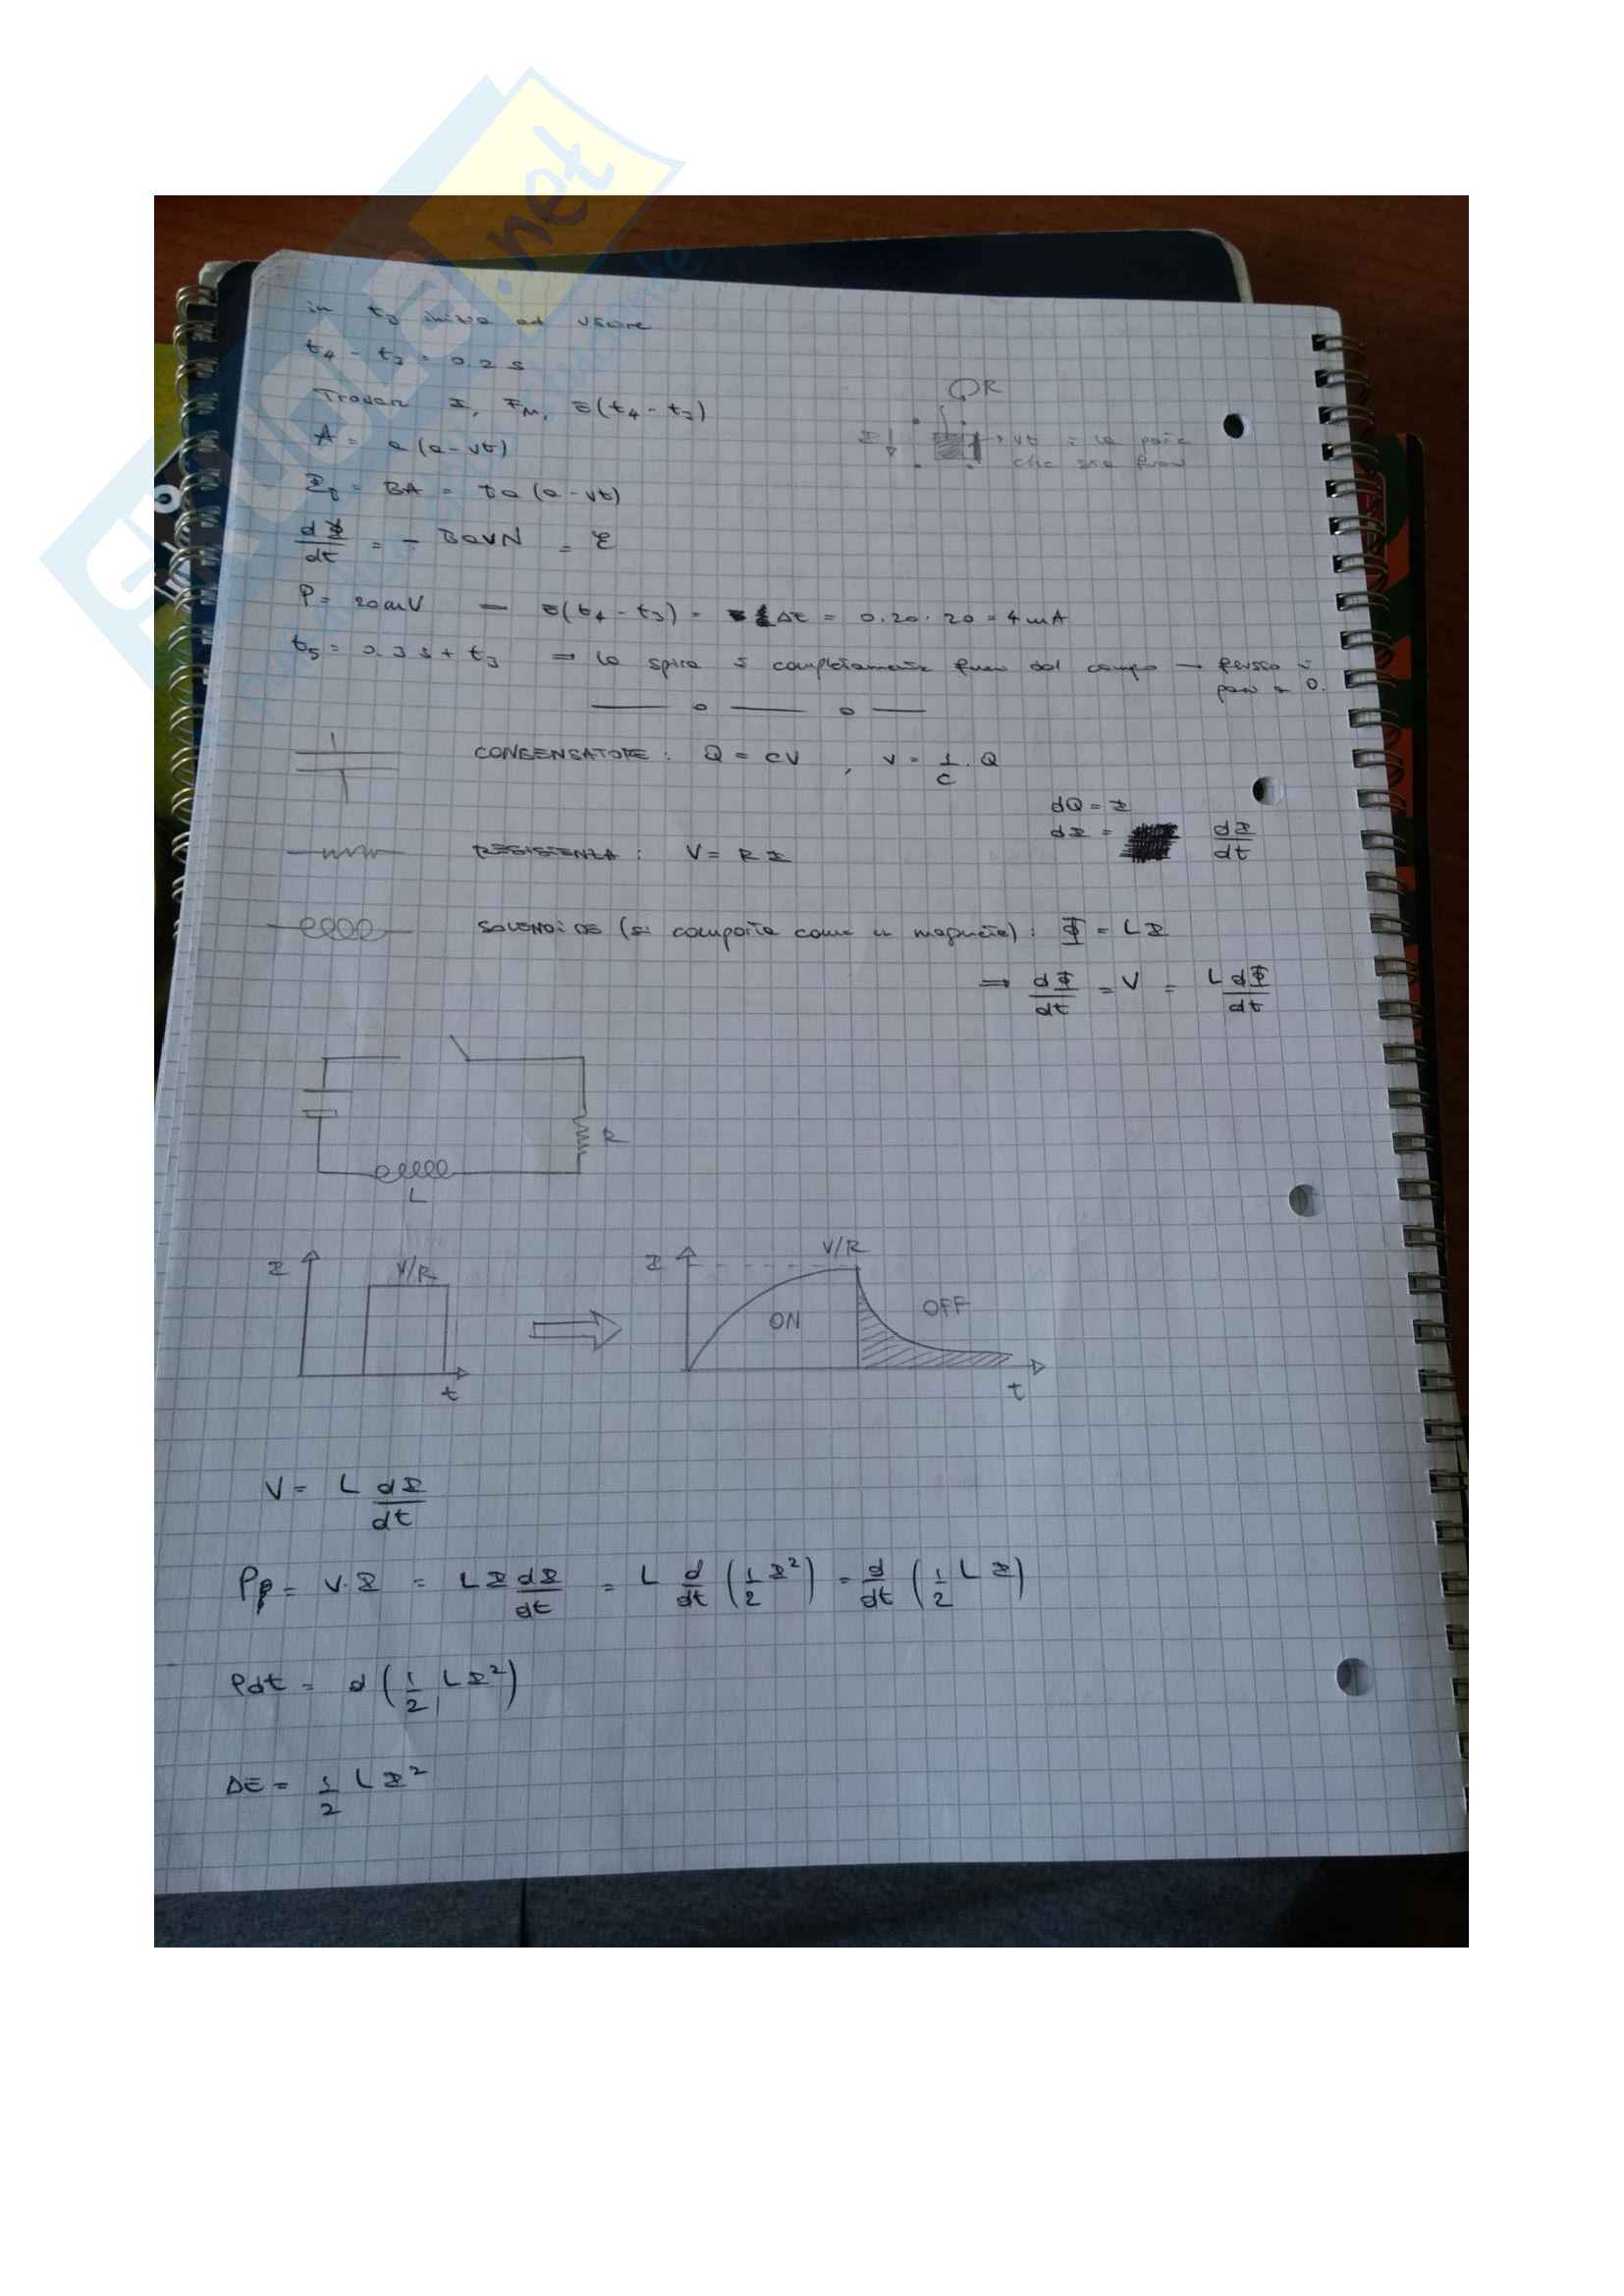 in t3 inizia ad uscire
t4 - t3 = 0.2 s
Trovare I, FM, E(t4 - t3)
R
A = a(a-vt)
I
vt = la parte
che sta fuori
ΦB = BA = Ba(a-vt)
dΦ/dt = - BavN = ℰ
P = 20mV — E(t4 - t3) = Δt = 0.20 · 20 = 4mA
t5 = 0.3 s + t3 ⇒ la spira è completamente fuori dal campo → flusso è
pari a 0.
CONDENSATORE: Q = CV , V = 1/C · Q
dQ = I
dI = dI/dt
RESISTENZA: V = R I
SOLENOIDE (si comporta come un magnete): Φ = LI
⇒ dΦ/dt = V = L dΦ/dt
R
L
I V/R t
I V/R ON OFF t
V = L dI/dt
Pp = V·I = LI dI/dt = L d/dt (1/2 I²) = d/dt (1/2 L I)
Pdt = d(1/2 L I²)
ΔE = 1/2 L I²